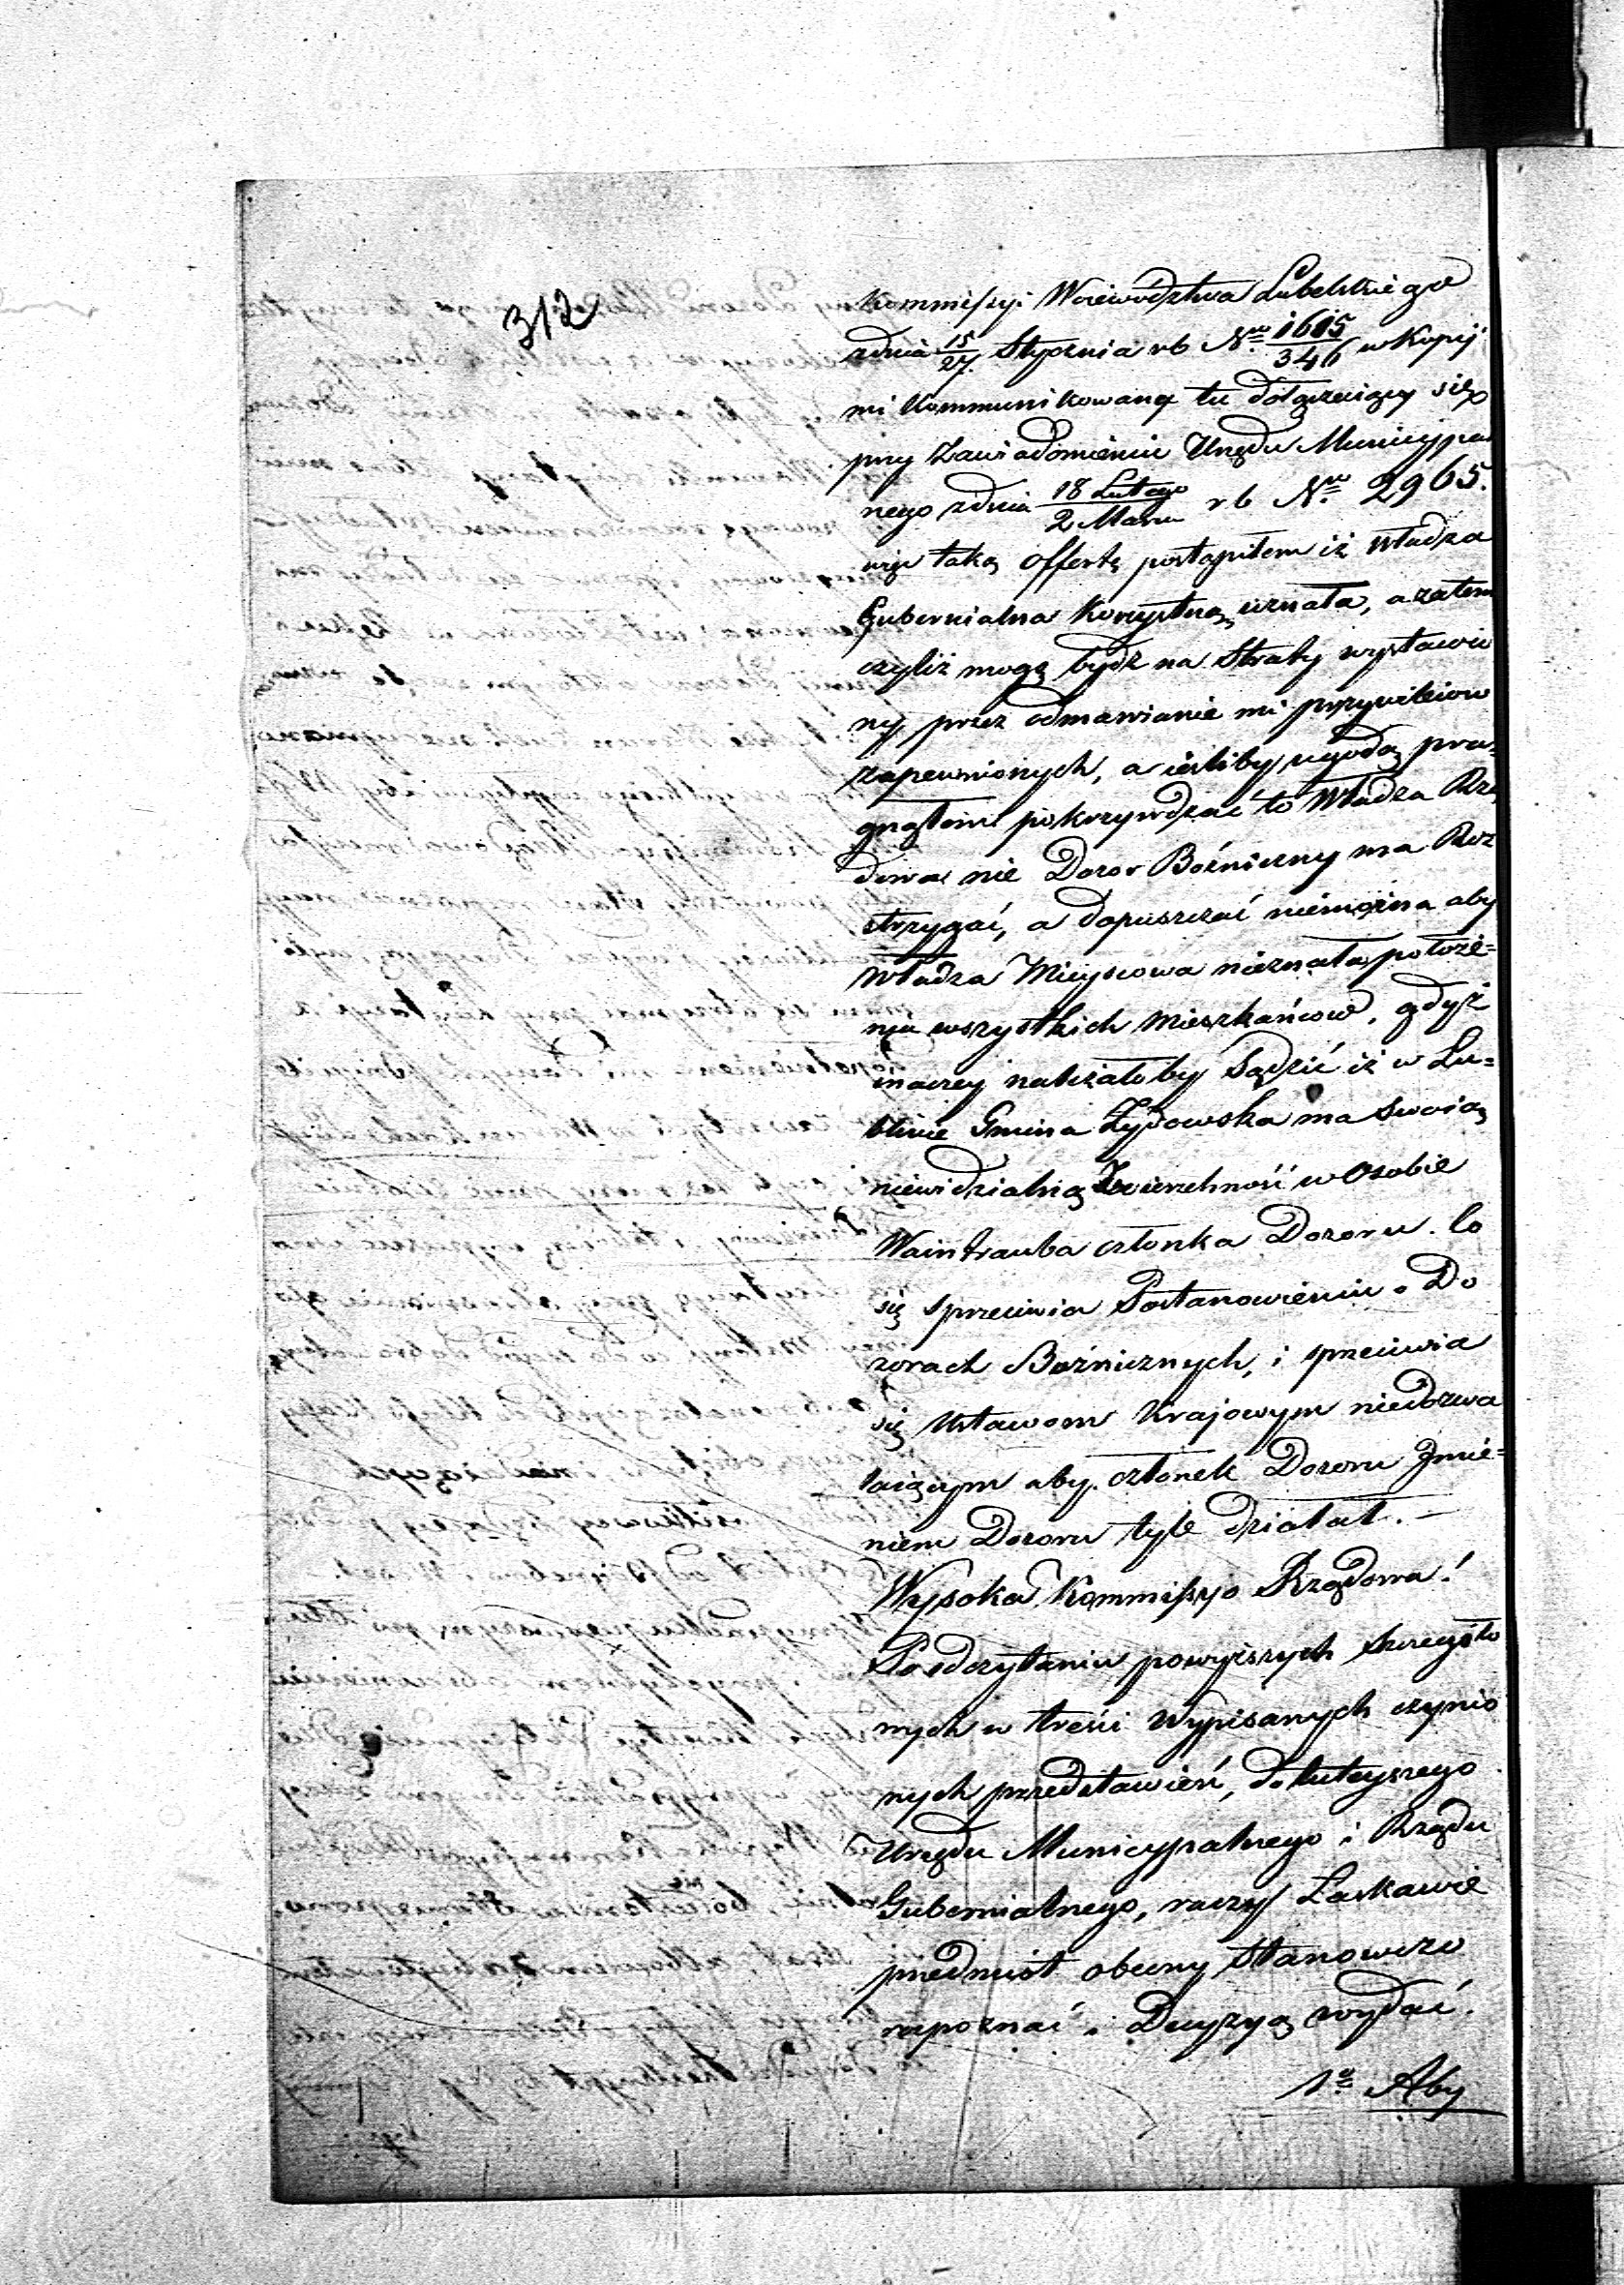 312
Kommissyi Woiewództwa Lubelskiego
zdnia 15/27 Stycznia rb No 1615/346 w Kopij
mi kommunikowaną tu dołączaiący się
przy Zawiadomieniu Urzędu Municypal
nego zdnia 18 Lutego/2 Marca rb No 2965.
więc taką offertę postąpiłem iż władza
Gubernialna korzystną uznała, a zatem
czyliż mogę bydź na Straty wystawio
ny przez odmawianie mi przywileiow
zapewnionych, a ieśliby ugodą pra=
gnąłem pokrzywdzać to Władza Rzą
dowa nie Dozor Bożniczny ma Roz
strzygać, a dopuszczać niemożna aby
Władza Mieyscowa nieznała położe=
nia wszystkich mieszkańcow, gdyż
inaczey należałoby Sądzić iż w Lu=
blinie Gmina Żydowska ma swoią
niewidzialną Zwierzchność w Osobie
Waintrauba członka Dozoru. Co
się sprzeciwia Postanowieniu o Do
zorach Bożnicznych, i sprzeciwia
się Ustawom Krajowym niedozwa
laiącym aby członek Dozoru Jmie=
niem Dozoru tyle działał. —
Wysoka Kommissyo Rządowa!
Po odczytaniu powyższych szczegóło
wych w treści wypisanych czynio
nych przedstawień, do tuteyszego
Urzędu Municypalnego i Rządu
Gubernialnego, raczy Łaskawie
przedmiot obecny stanowczo
rozpoznać i Decyzyą wydać.
1o Aby